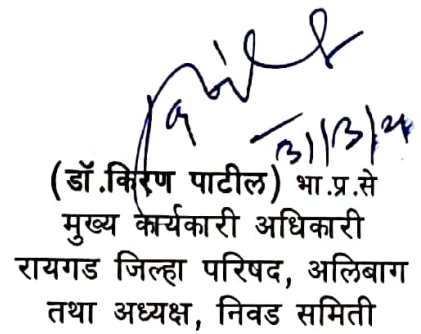 31/3/24
(डॉ.किरण पाटील) भा.प्र.से
मुख्य कार्यकारी अधिकारी
रायगड जिल्हा परिषद, अलिबाग
तथा अध्यक्ष, निवड समिती